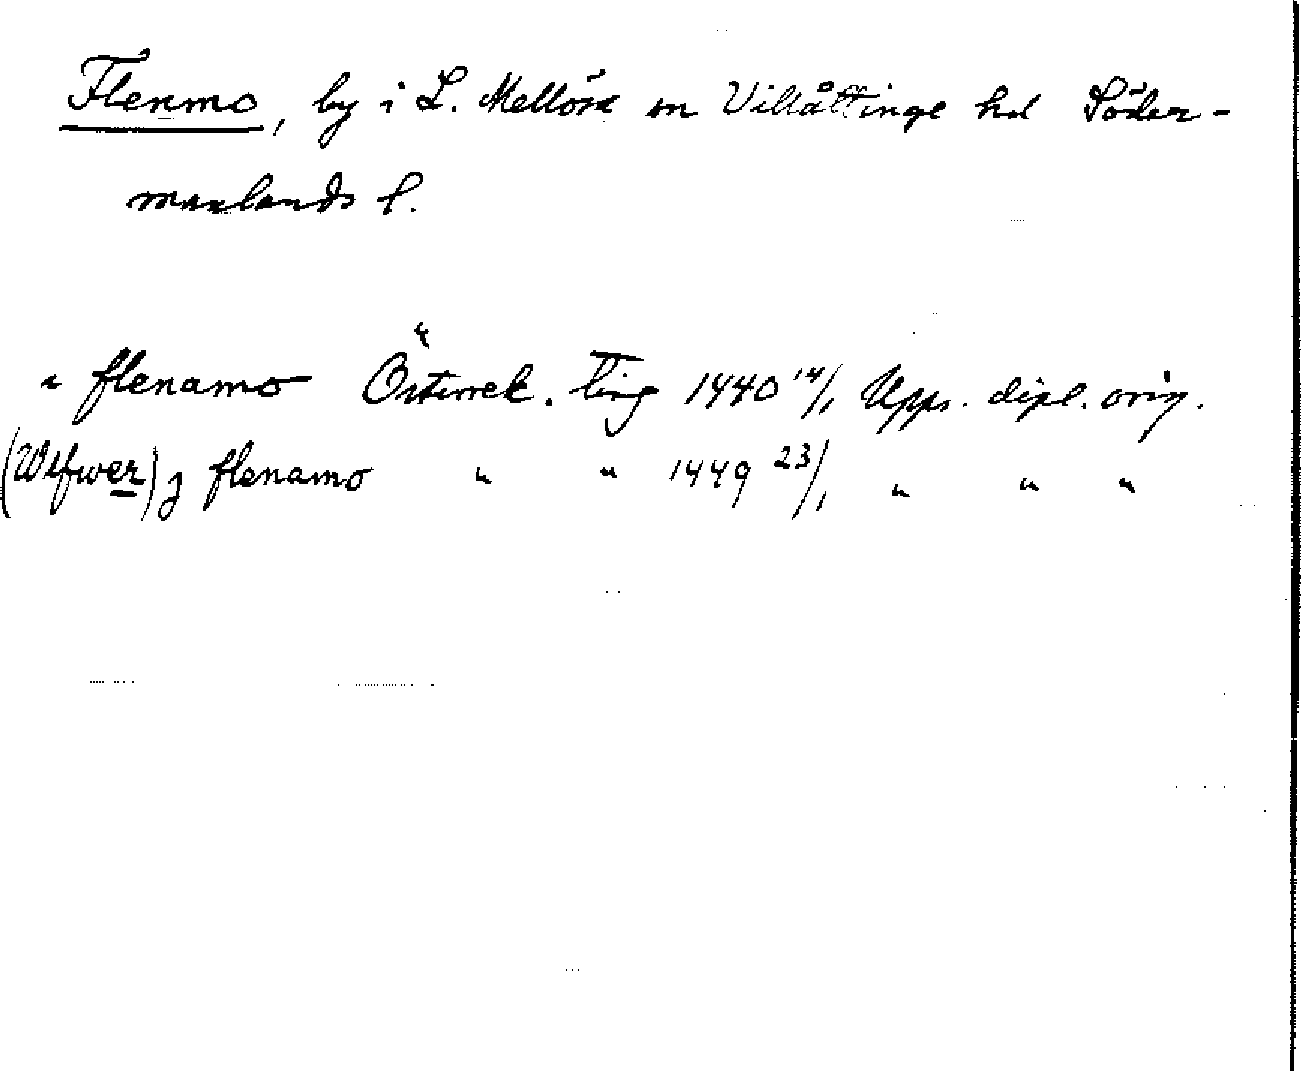 Flenmo, by i L. Mellösa sn Villåttinge hd Söder-
manlands l.
i flenamo Österrek. Ting 1440 14/1 Upps. dipl. orig.
(Wlfwer) j flenamo " " 1449 23/1 " " "